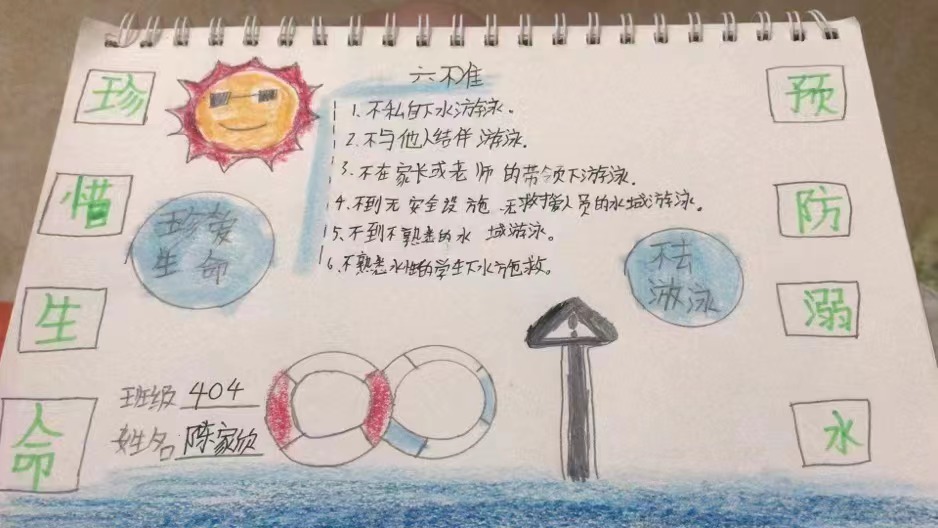 六不准
珍
惜
生
命
1.不私自下水游泳。
2.不与他人结伴游泳.
3.不在家长或老师的带领下游泳.
4.不到无安全设施 无救援人员的水域游泳。
5.不到不熟悉的水域游泳。
6.不熟悉水性的学生下水施救。
珍爱
生命
不去
游泳
预
防
溺
水
班级 404
姓名 陈家欣